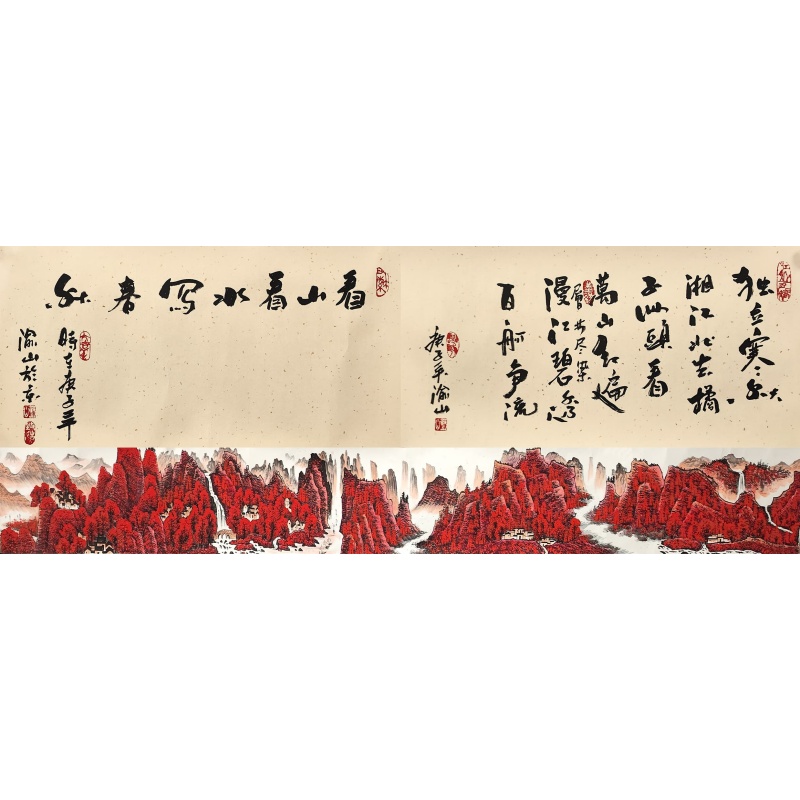 独立寒秋
湘江北去橘
子洲頭看
萬山红遍
層林尽染
漫江碧透
百舸争流
庚子年渝山
看山看水写春秋
時在庚子年
渝山於京